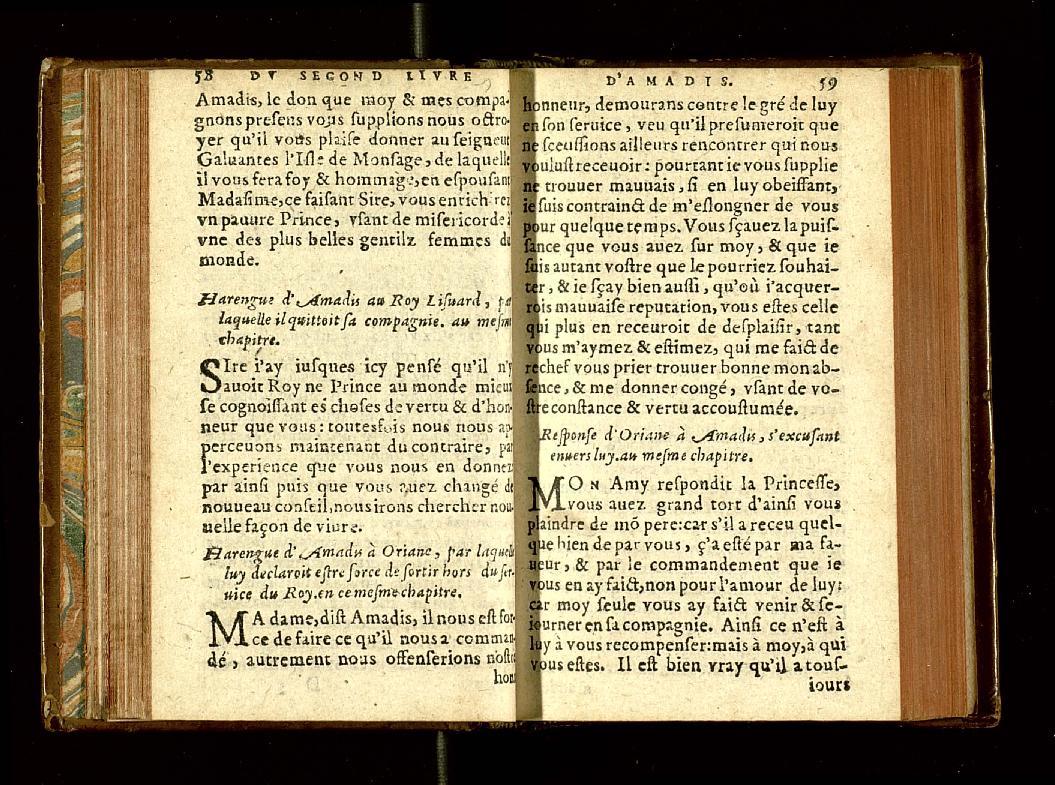 58 DV SECOND LIVRE
Amadis, le don que moy & mes compa-
gnons presens vous supplions nous octro-
yer qu'il vous plaise donner au seigneur
Galuantes l'Isle de Monsage, de laquelle
il vous fera foy & hommage, en espousant
Madasime, ce faisant Sire, vous enrichirez
vn pauure Prince, vsant de misericorde à
vne des plus belles gentilz femmes du
monde.
Harengue d'Amadis au Roy Lisuard, par
laquelle il quittoit sa compagnie. au mesme
chapitre.
SIre i'ay iusques icy pensé qu'il n'y
auoit Roy ne Prince au monde mieux
se cognoissant es choses de vertu & d'hon-
neur que vous: toutesfois nous nous ap-
perceuons maintenant du contraire, par
l'experience que vous nous en donnez
par ainsi puis que vous auez changé de
nouueau conseil, nous irons chercher nou-
uelle façon de viure.
Harengue d'Amadis à Oriane, par laquelle
luy declaroit estre force de sortir hors du ser-
uice du Roy. en ce mesme chapitre.
MA dame, dist Amadis, il nous est for-
ce de faire ce qu'il nous a comman-
dé, autrement nous offenserions nostre
hon
D'AMADIS. 59
honneur, demourans contre le gré de luy
en son seruice, veu qu'il presumeroit que
ne sceussions ailleurs rencontrer qui nous
voulust receuoir: pourtant ie vous supplie
ne trouuer mauuais, si en luy obeissant,
ie suis contrainct de m'eslongner de vous
pour quelque temps. Vous sçauez la puis-
sance que vous auez sur moy, & que ie
suis autant vostre que le pourriez souhai-
ter, & ie sçay bien aussi, qu'où i'acquer-
rois mauuaise reputation, vous estes celle
qui plus en receuroit de desplaisir, tant
vous m'aymez & estimez, qui me faict de
rechef vous prier trouuer bonne mon ab-
sence, & me donner congé, vsant de vo-
stre constance & vertu accoustumée.
Response d'Oriane à Amadis, s'excusant
enuers luy. au mesme chapitre.
MON Amy respondit la Princesse,
vous auez grand tort d'ainsi vous
plaindre de mõ pere: car s'il a receu quel-
que bien de par vous, ç'a esté par ma fa-
ueur, & par le commandement que ie
vous en ay faict, non pour l'amour de luy:
car moy seule vous ay faict venir & se-
iourner en sa compagnie. Ainsi ce n'est à
luy à vous recompenser: mais à moy, à qui
vous estes. Il est bien vray qu'il a tous-
iours